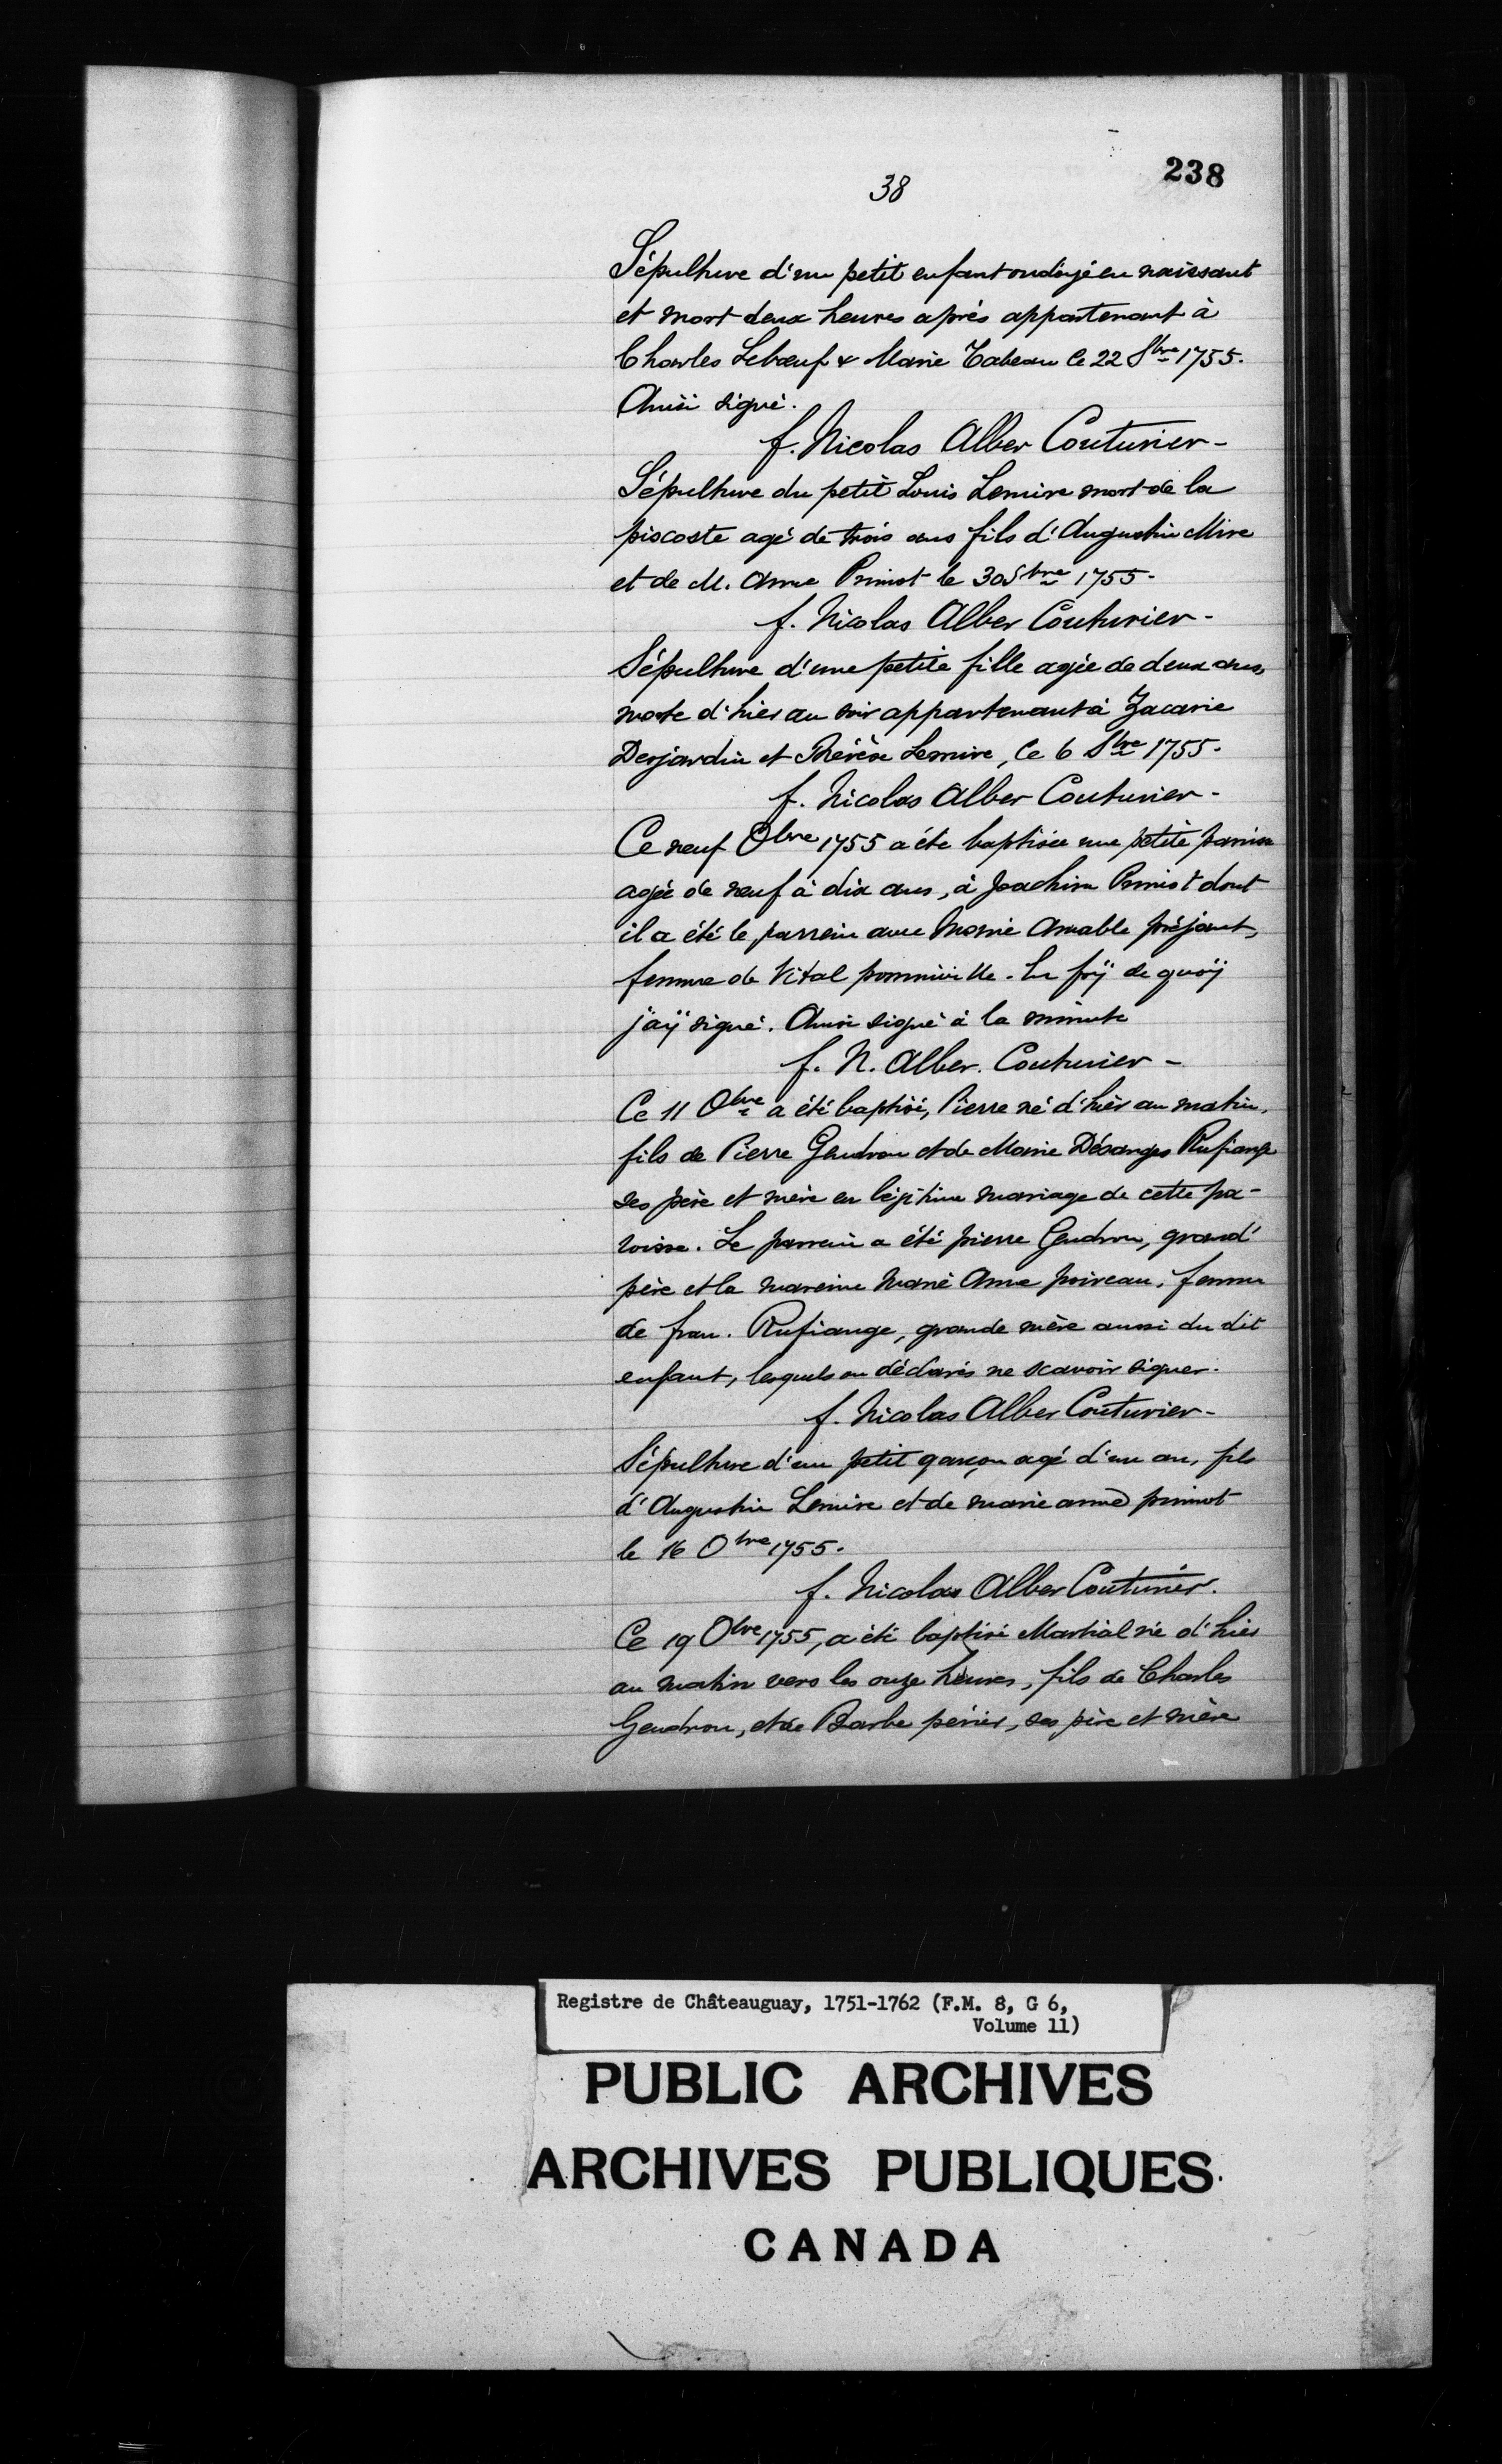 238
38
Sépulture d'un petit enfant ondoyé en naissant
et mort deux heures après appartenant à
Charles Lebœuf & Marie Tabeau Ce 22 Sbre 1755.
Ainsi signé.
f. Nicolas Alber Couturier-
Sépulture du petit Louis Lemire mort de la
piscoste agé de trois ans fils d'Augustin Mire
et de M. Anne Primot le 30 Sbre 1755-
f. Nicolas Alber Couturier-
Sépulture d'une petite fille agée de deux ans,
morte d'hier au soir appartenant à Zacarie
Desjardin et Thérèse Lemire, Ce 6 Sbre 1755-
f. Nicolas Alber Couturier-
Ce neuf Obre 1755 a éte baptisée une petite panise
agée de neuf à dix ans, à Joachim Primot dont
il a été le parrein avec Marie Amable préjant,
femme de Vital pomminville. En foÿ de quoÿ
j'aÿ signé. Ainsi signé à la minute
f. N. Alber. Couturier-
Ce 11 Obre a été baptisé, Pierre né d'hièr au matin,
fils de Pierre Gendron et de Marie Désanges Rufiange
ses père et mère en légitime mariage de cette pa-
roisse. Le parrain a été pierre Gendron, grand'
père et la mareine Marie Anne poireau, femme
de fran. Rufiange, grande mère aussi du dit
enfant, lesquels on déclarés ne scavoir signer.
f. Nicolas Alber Couturier-
Sépulture d'un petit garçon agé d'un an, fils
d'Augustin Lemire et de marie anne primot
le 16 Obre 1755.
f. Nicolas Alber Couturier.
Ce 19 Obre 1755, a été baptisé Martial né d'hier
au matin vers les onze heures, fils de Charles
Gendron, et de Barbe périer, ses père et mère
Registre de Châteauguay, 1751-1762 (F.M. 8, G 6,
Volume 11)
PUBLIC ARCHIVES
ARCHIVES PUBLIQUES
CANADA